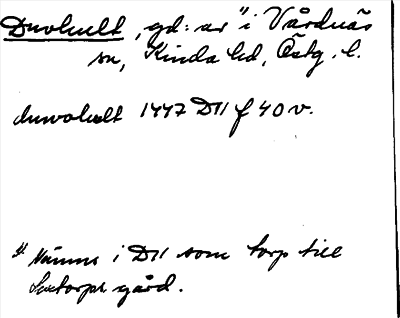 Duvhult, gd:ar" i Vårdnäs
sn, Kinda hd, Östg. l.
duwohult 1447 D11 f 40 v.
1) Nämns i D11 som torp till
gård.